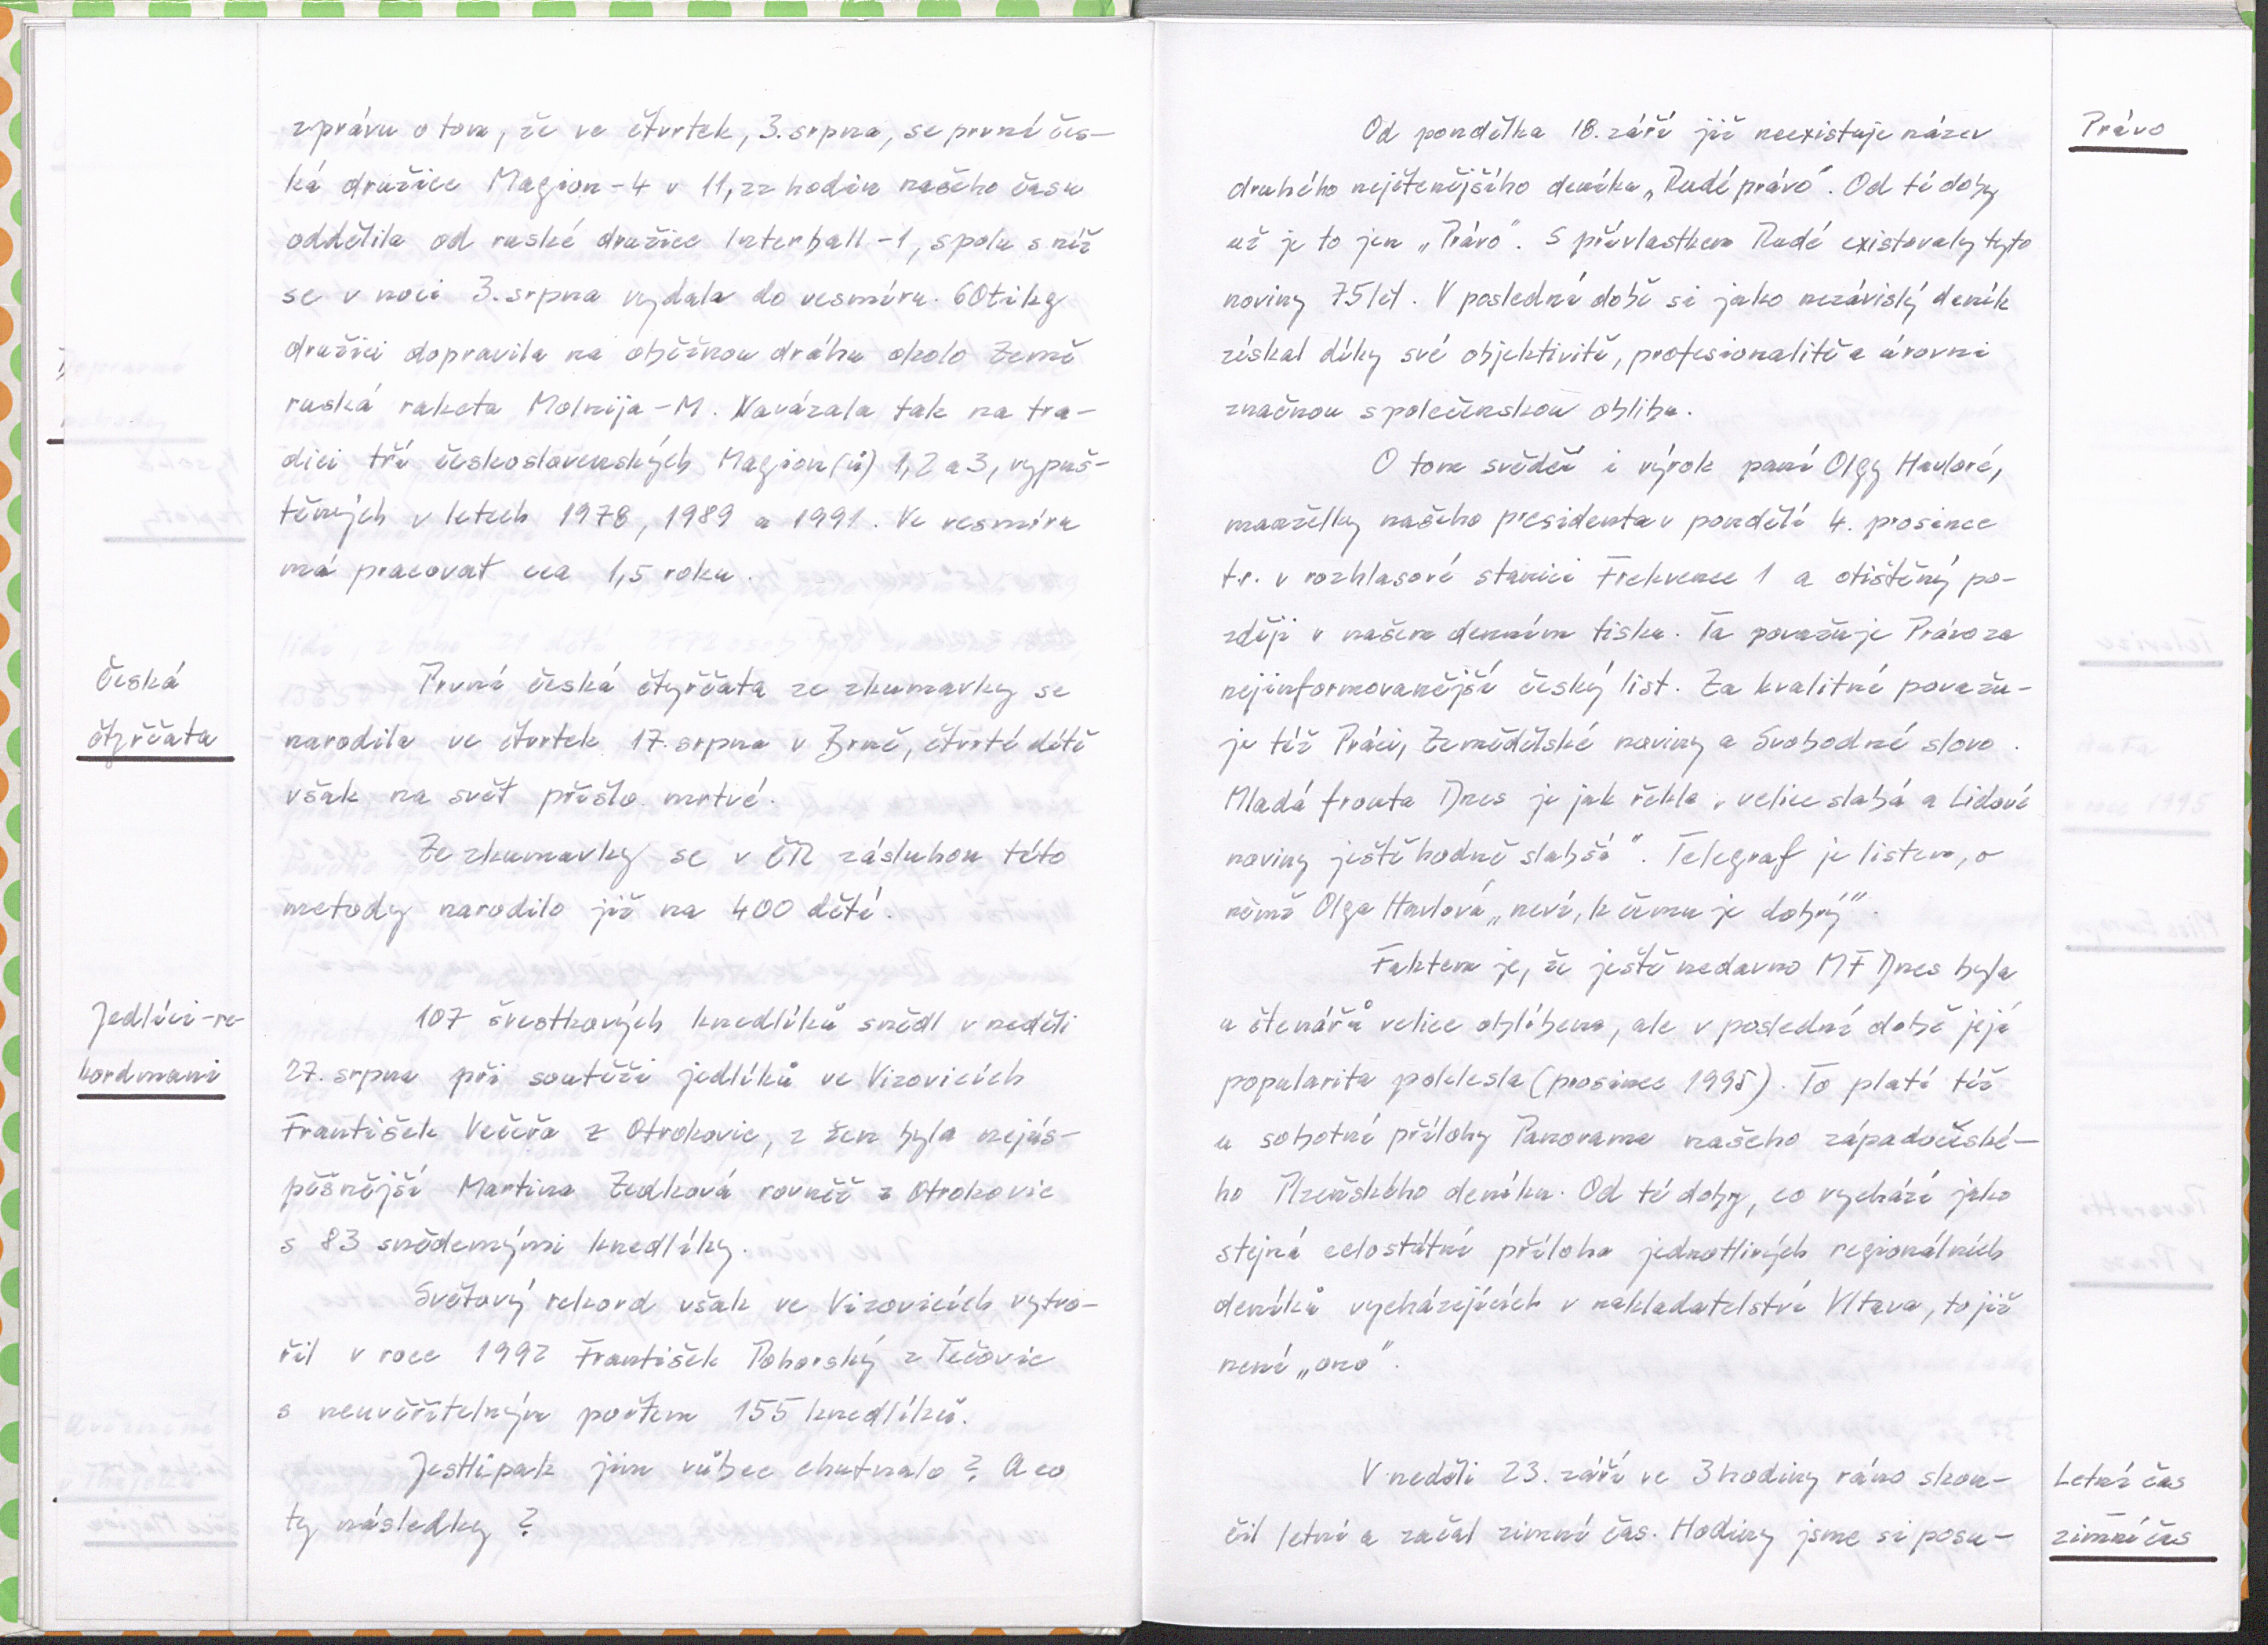 zprávu o tom, že ve čtvrtek, 3. srpna, se první čes-
ká družice Magion-4 v 11,22 hodin našeho času
oddělila od ruské družice Interball-1, spolu s níž
se v noci 3. srpna vydala do vesmíru. 60ti kg
družici dopravila na oběžnou dráhu okolo Země
ruská raketa Molnija-M. Navázala tak na tra-
dici tří československých Magion(ů) 1, 2 a 3, vypuš-
těných v letech 1978, 1989 a 1991. Ve vesmíru
má pracovat cca 1,5 roku.
Česká
čtyřčata
První česká čtyřčata ze zkumavky se
narodila ve čtvrtek 17. srpna v Brně, čtvrté dítě
však na svět přišlo mrtvé.
Ze zkumavky se v ČR zásluhou této
metody narodilo již na 400 dětí.
Jedlíci-re-
kordmani
107 švestkových knedlíků snědl v neděli
27. srpna při soutěži jedlíků ve Vizovicích
František Večeřa z Otrokovic, z žen byla nejús-
pěšnější Martina Zedková rovněž z Otrokovic
s 83 snědenými knedlíky.
Světový rekord však ve Vizovicích vytvo-
řil v roce 1992 František Pohorský z Tečovic
s neuvěřitelným počtem 155 knedlíků.
Jestlipak jim vůbec chutnalo? A co
ty následky?
Právo
Od pondělka 18. září již neexistuje název
druhého nejčtenějšího deníku „Rudé právo“. Od té doby
už je to jen „Právo“. S přívlastkem Rudé existovaly tyto
noviny 75 let. V poslední době si jako nezávislý deník
získal díky své objektivitě, profesionalitě a úrovni
značnou společenskou oblibu.
O tom svědčí i výrok paní Olgy Havlové,
manželky našeho presidenta v pondělí 4. prosince
t.r. v rozhlasové stanici Frekvence 1 a otištěný po-
zději v našem denním tisku. Ta považuje Právo za
nejinformovanější český list. Za kvalitné považu-
je též Práci, Zemědělské noviny a Svobodné slovo.
Mladá fronta Dnes je jak řekla „velice slabá a Lidové
noviny ještě hodně slabší“. Telegraf je listem, o
němž Olga Havlová „neví, k čemu je dobrý“.
Faktem je, že ještě nedávno MF Dnes byla
u čtenářů velice oblíbena, ale v poslední době její
popularita poklesla (prosinec 1995). To platí též
u sobotní přílohy Panorama našeho západočeské-
ho Plzeňského deníku. Od té doby, co vychází jako
stejná celostátní příloha jednotlivých regionálních
deníků vycházejících v nakladatelství Vltava, to již
není „ono“.
Letní čas
zimní čas
V neděli 23. září ve 3 hodiny ráno skon-
čil letní a začal zimní čas. Hodiny jsme si posu-